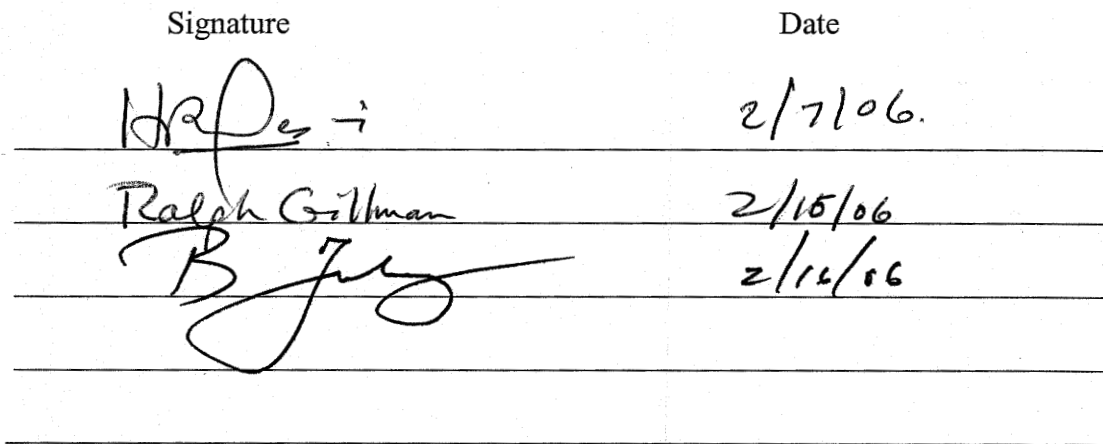 Signature Date
2/7/06.
Ralph Gillman 2/15/06
B 2/16/06